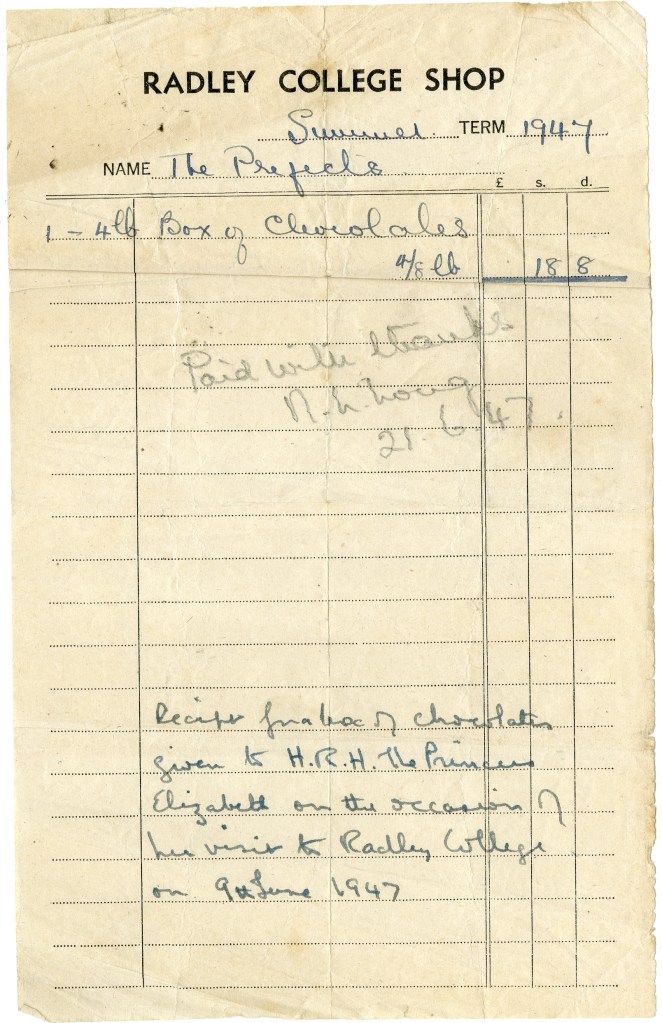 RADLEY COLLEGE SHOP
Summer TERM 1947
NAME The Prefects
£ s. d.
1 - 4lb Box of Chocolates
4/8 lb 18 8
Paid with thanks
21.6.47.
Receipt for a box of chocolates
given to H.R.H. The Princess
Elizabeth on the occasion of
her visit to Radley College
on 9th June 1947